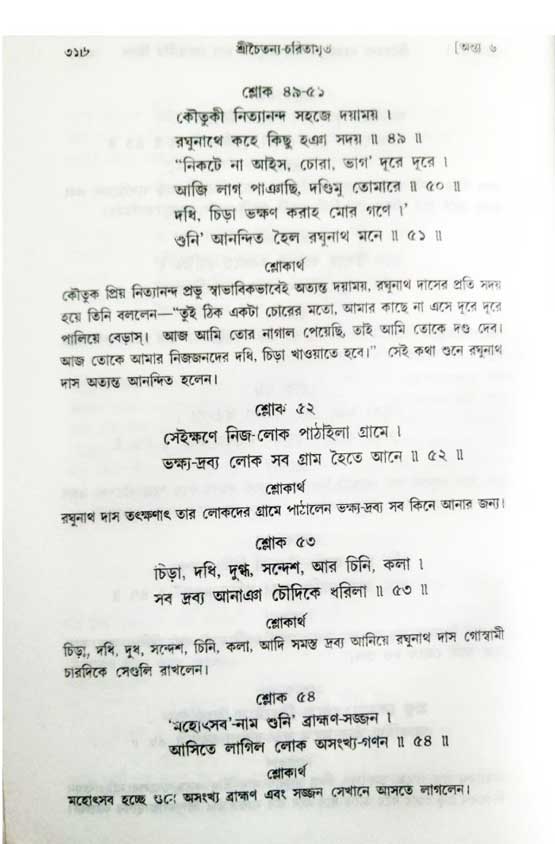 ৩১৬ শ্রীচৈতন্য-চরিতামৃত [অন্ত্য ৬
শ্লোক ৪৯-৫১
কৌতুকী নিত্যানন্দ সহজে দয়াময় ।
রঘুনাথে কহে কিছু হঞা সদয় ॥ ৪৯ ॥
“নিকটে না আইস, চোরা, ভাগ’ দূরে দূরে ।
আজি লাগ্ পাঞাছি, দণ্ডিমু তোমারে ॥ ৫০ ॥
দধি, চিড়া ভক্ষণ করাহ মোর গণে ।’
শুনি’ আনন্দিত হৈল রঘুনাথ মনে ॥ ৫১ ॥
শ্লোকার্থ
কৌতুক প্রিয় নিত্যানন্দ প্রভু স্বাভাবিকভাবেই অত্যন্ত দয়াময়, রঘুনাথ দাসের প্রতি সদয়
হয়ে তিনি বললেন—“তুই ঠিক একটা চোরের মতো, আমার কাছে না এসে দূরে দূরে
পালিয়ে বেড়াস্। আজ আমি তোর নাগাল পেয়েছি, তাই আমি তোকে দণ্ড দেব।
আজ তোকে আমার নিজজনদের দধি, চিড়া খাওয়াতে হবে।” সেই কথা শুনে রঘুনাথ
দাস অত্যন্ত আনন্দিত হলেন।
শ্লোক ৫২
সেইক্ষণে নিজ-লোক পাঠাইলা গ্রামে ।
ভক্ষ্য-দ্রব্য লোক সব গ্রাম হৈতে আনে ॥ ৫২ ॥
শ্লোকার্থ
রঘুনাথ দাস তৎক্ষণাৎ তার লোকদের গ্রামে পাঠালেন ভক্ষ্য-দ্রব্য সব কিনে আনার জন্য।
শ্লোক ৫৩
চিড়া, দধি, দুগ্ধ, সন্দেশ, আর চিনি, কলা ।
সব দ্রব্য আনাঞা চৌদিকে ধরিলা ॥ ৫৩ ॥
শ্লোকার্থ
চিড়া, দধি, দুধ, সন্দেশ, চিনি, কলা, আদি সমস্ত দ্রব্য আনিয়ে রঘুনাথ দাস গোস্বামী
চারদিকে সেগুলি রাখলেন।
শ্লোক ৫৪
‘মহোৎসব’-নাম শুনি’ ব্রাহ্মণ-সজ্জন ।
আসিতে লাগিল লোক অসংখ্য-গণন ॥ ৫৪ ॥
শ্লোকার্থ
মহোৎসব হচ্ছে শুনে অসংখ্য ব্রাহ্মণ এবং সজ্জন সেখানে আসতে লাগলেন।